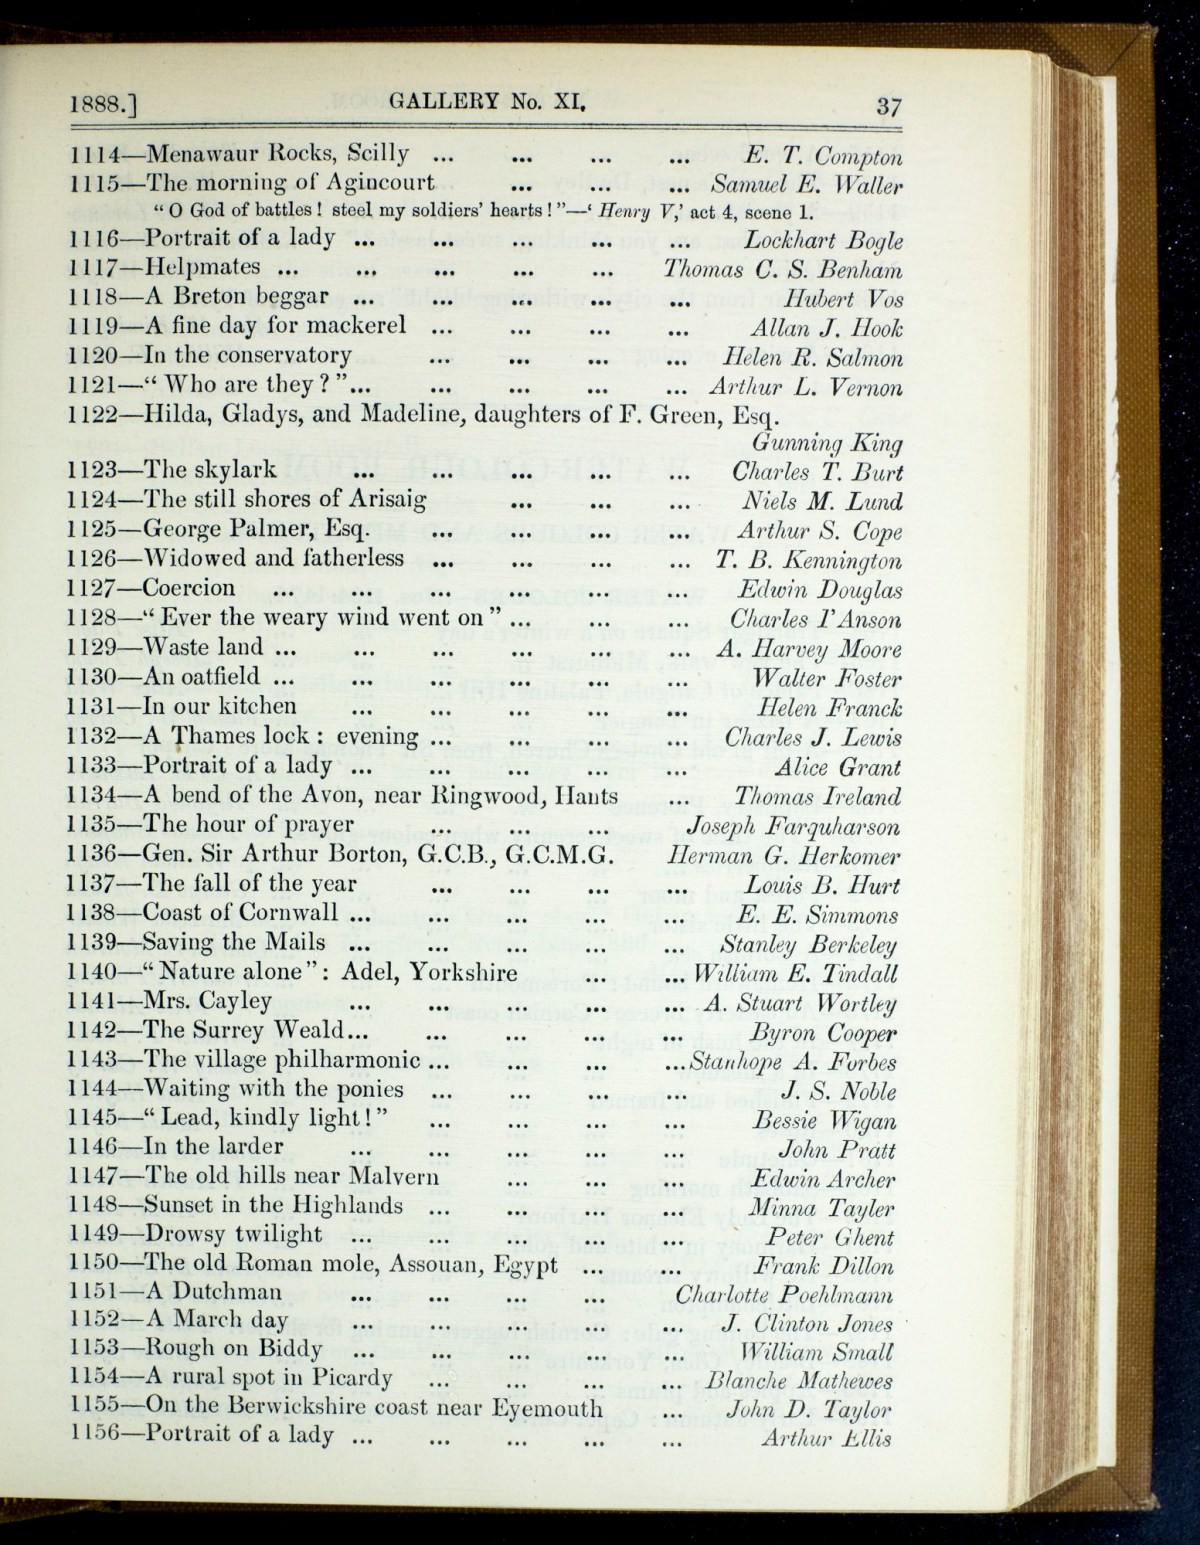 1888.] GALLERY No. XI. 37
1114—Menawaur Rocks, Scilly ... ... ... ... E. T. Compton
1115—The morning of Agincourt ... ... ... Samuel E. Waller
“ O God of battles ! steel my soldiers’ hearts ! ”—‘ Henry V,’ act 4, scene 1.
1116—Portrait of a lady ... ... ... ... ... Lockhart Bogle
1117—Helpmates ... ... ... ... ... Thomas C. S. Benham
1118—A Breton beggar ... ... ... ... ... Hubert Vos
1119—A fine day for mackerel ... ... ... ... Allan J. Hook
1120—In the conservatory ... ... ... ... Helen R. Salmon
1121—“ Who are they ? ”... ... ... ... ... Arthur L. Vernon
1122—Hilda, Gladys, and Madeline, daughters of F. Green, Esq.
Gunning King
1123—The skylark ... ... ... ... ... Charles T. Burt
1124—The still shores of Arisaig ... ... ... Niels M. Lund
1125—George Palmer, Esq. ... ... ... ... Arthur S. Cope
1126—Widowed and fatherless ... ... ... ... T. B. Kennington
1127—Coercion ... ... ... ... ... ... Edwin Douglas
1128—“ Ever the weary wind went on ” ... ... ... Charles I’Anson
1129—Waste land ... ... ... ... ... ... A. Harvey Moore
1130—An oatfield ... ... ... ... ... ... Walter Foster
1131—In our kitchen ... ... ... ... ... Helen Franck
1132—A Thames lock : evening ... ... ... ... Charles J. Lewis
1133—Portrait of a lady ... ... ... ... ... Alice Grant
1134—A bend of the Avon, near Ringwood, Hants ... Thomas Ireland
1135—The hour of prayer ... ... ... Joseph Farquharson
1136—Gen. Sir Arthur Borton, G.C.B., G.C.M.G. Herman G. Herkomer
1137—The fall of the year ... ... ... ... Louis B. Hurt
1138—Coast of Cornwall ... ... ... ... ... E. E. Simmons
1139—Saving the Mails ... ... ... ... ... Stanley Berkeley
1140—“ Nature alone ” : Adel, Yorkshire ... ... William E. Tindall
1141—Mrs. Cayley ... ... ... ... ... A. Stuart Wortley
1142—The Surrey Weald... ... ... ... ... Byron Cooper
1143—The village philharmonic ... ... ... ...Stanhope A. Forbes
1144—Waiting with the ponies ... ... ... ... J. S. Noble
1145—“ Lead, kindly light ! ” ... ... ... ... Bessie Wigan
1146—In the larder ... ... ... ... ... John Pratt
1147—The old hills near Malvern ... ... ... Edwin Archer
1148—Sunset in the Highlands ... ... ... ... Minna Tayler
1149—Drowsy twilight ... ... ... ... ... Peter Ghent
1150—The old Roman mole, Assouan, Egypt ... ... Frank Dillon
1151—A Dutchman ... ... ... ... Charlotte Poehlmann
1152—A March day ... ... ... ... ... J. Clinton Jones
1153—Rough on Biddy ... ... ... ... ... William Small
1154—A rural spot in Picardy ... ... ... ... Blanche Mathewes
1155—On the Berwickshire coast near Eyemouth ... John D. Taylor
1156—Portrait of a lady ... ... ... ... ... Arthur Ellis